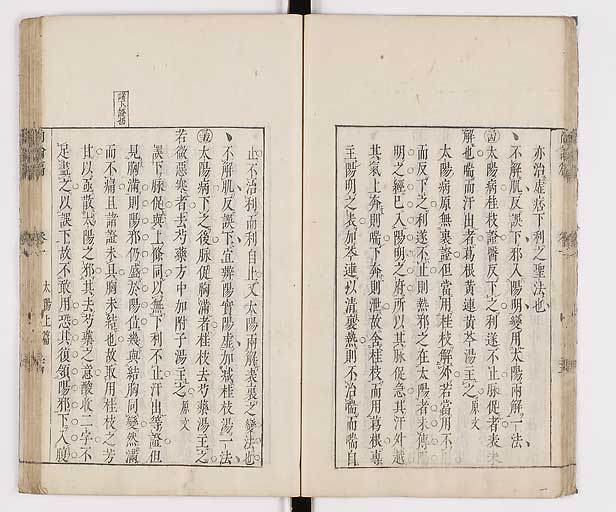 亦治虛痞下利之聖法也
不解肌反誤下邪入陽明變用太陽兩解一法
太陽病桂枝證醫反下之利遂不止脈促者表未
解也喘而汗出者葛根黃連黃芩湯主之 原文
太陽病原無裏證但當用桂枝解外若當用不用
而反下之利遂不止則熱邪之在太陽者未傳陽
明之經已入陽明之府所以其脈促急其汗外越
其氣上奔則喘下奔則泄故舍桂枝而用葛根專
主陽明之表加芩連以清裏熱則不治喘而喘自
止不治利而利自止又太陽兩解表裏之變法也
不解肌反誤下宜辨陽實陽虛加減桂枝湯一法
太陽病下之後脈促胸滿者桂枝去芍藥湯主之
若微惡寒者去芍藥方中加附子湯主之 原文
誤下脈促與上條同以無下利不止汗出等證但
見胸滿則陽邪仍盛於陽位幾與結胸同變然滿
而不痛且諸證未具胸未結也故取用桂枝之芳
甘以亟散太陽之邪其去芍藥之意酸收二字不
足盡之以誤下故不敢用恐其復領陽邪下入腹
卷一
太陽上篇